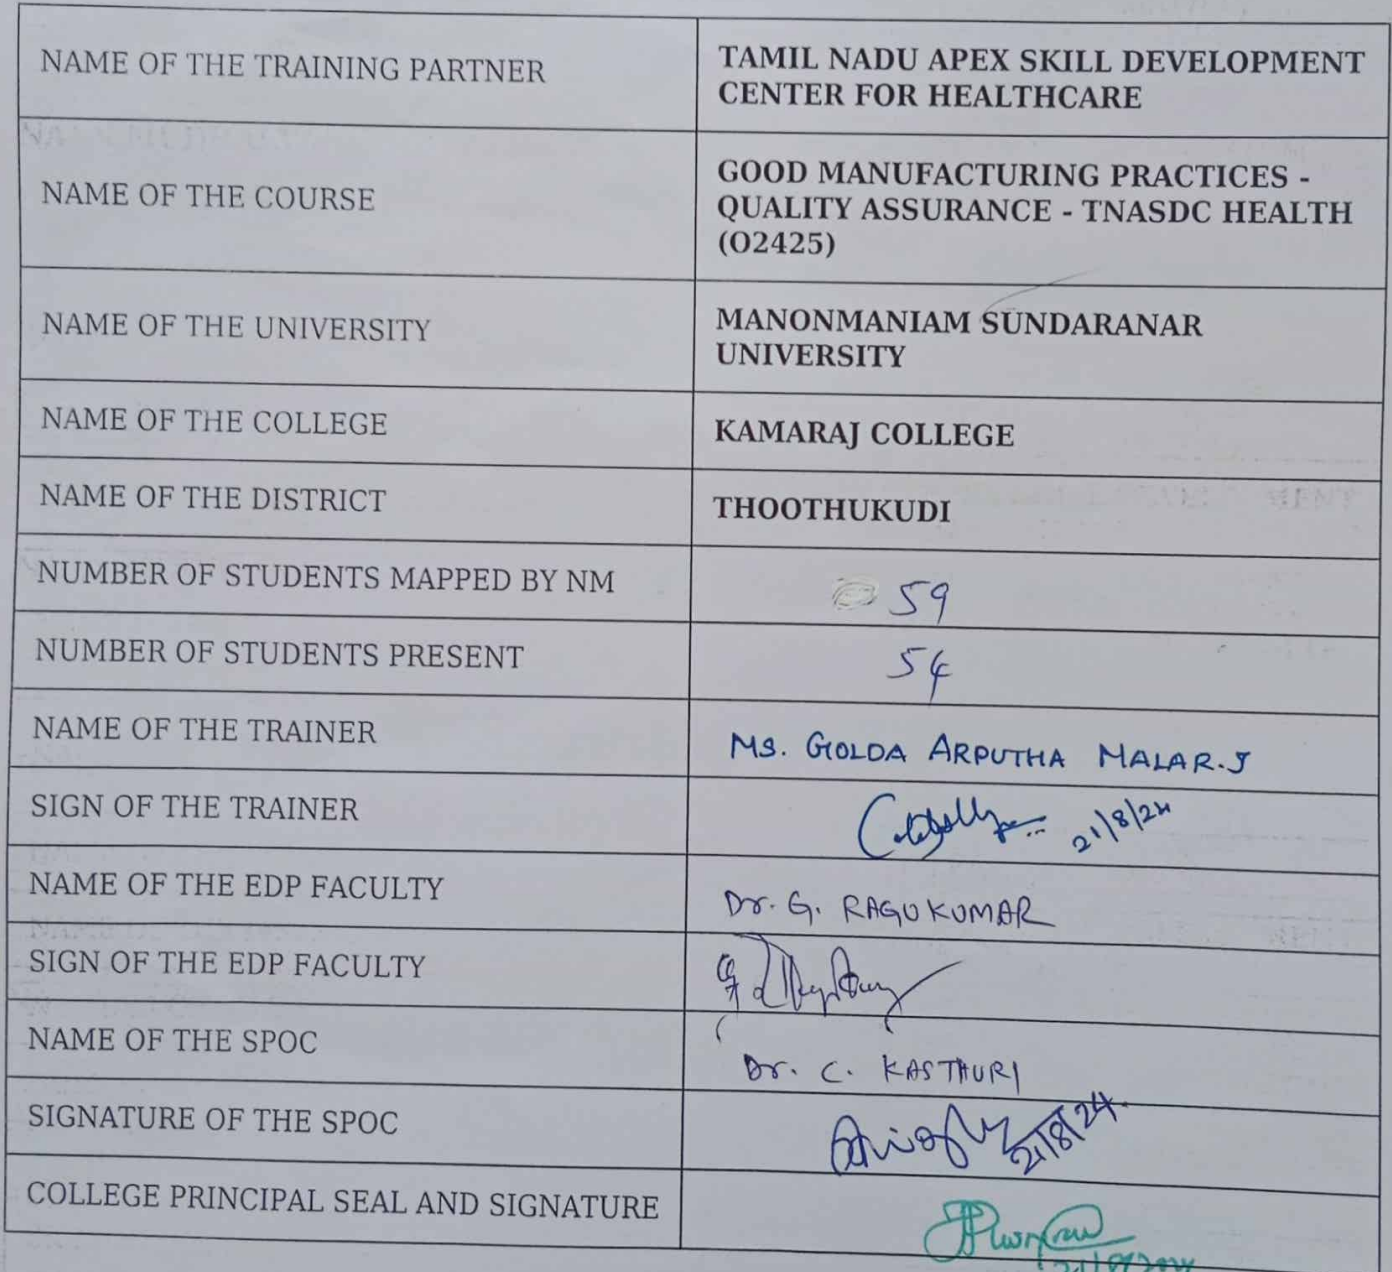 NAME OF THE TRAINING PARTNER
TAMIL NADU APEX SKILL DEVELOPMENT
CENTER FOR HEALTHCARE
NAME OF THE COURSE
GOOD MANUFACTURING PRACTICES -
QUALITY ASSURANCE - TNASDC HEALTH
(O2425)
NAME OF THE UNIVERSITY
MANONMANIAM SUNDARANAR
UNIVERSITY
NAME OF THE COLLEGE
KAMARAJ COLLEGE
NAME OF THE DISTRICT
THOOTHUKUDI
NUMBER OF STUDENTS MAPPED BY NM
59
NUMBER OF STUDENTS PRESENT
54
NAME OF THE TRAINER
MS. GOLDA ARPUTHA MALAR.J
SIGN OF THE TRAINER
21/8/24
NAME OF THE EDP FACULTY
Dr. G. RAGUKUMAR
SIGN OF THE EDP FACULTY
NAME OF THE SPOC
Dr. C. KASTHURI
SIGNATURE OF THE SPOC
21/8/24
COLLEGE PRINCIPAL SEAL AND SIGNATURE